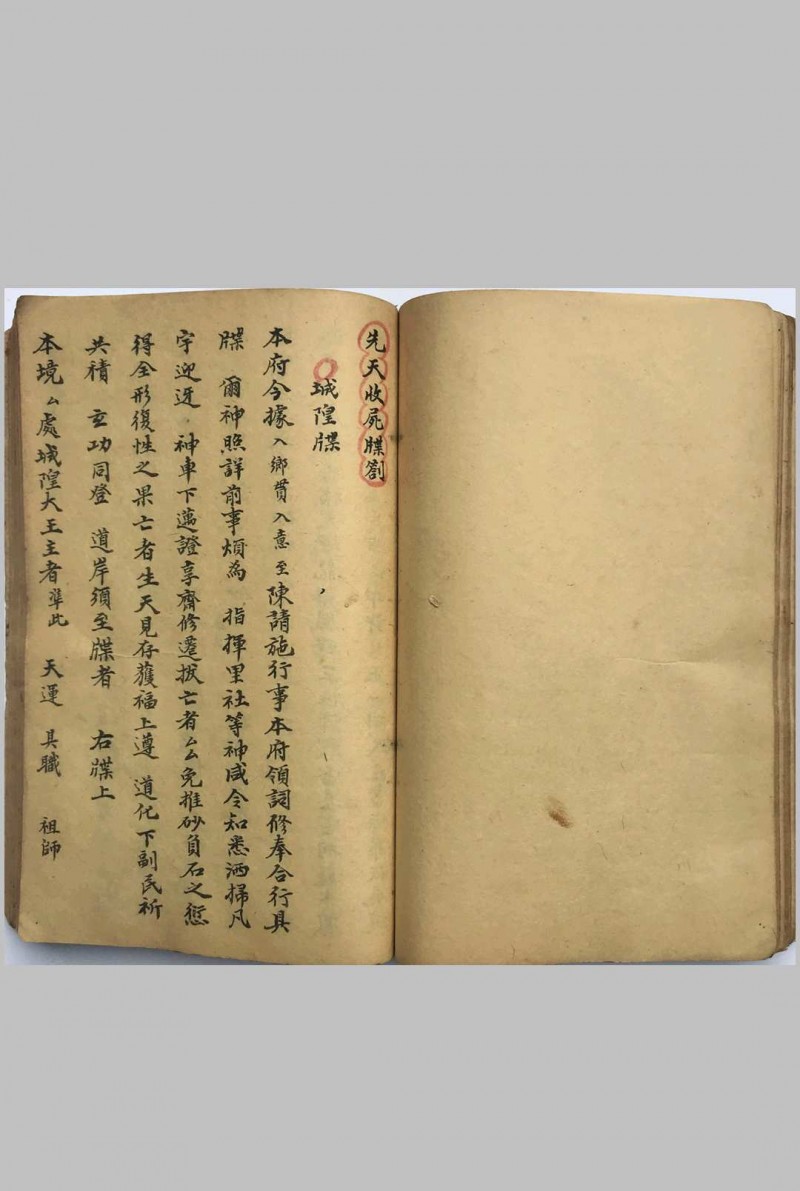 先天收屍牒劄
城隍牒
本府今據入鄉貫入意至陳請施行事本府領詞修奉合行具
牒 爾神照詳前事煩為 指揮里社等神咸令知悉洒掃凡
宇迎迓 神車下邁證享齋修遷拔亡者厶厶免推砂負石之愆
得全形復性之果亡者生天見存獲福上遵 道化下副民祈
共積 玄功同登 道岸須至牒者 右牒上
本境厶處城隍大王主者準此 天運 具職 祖師